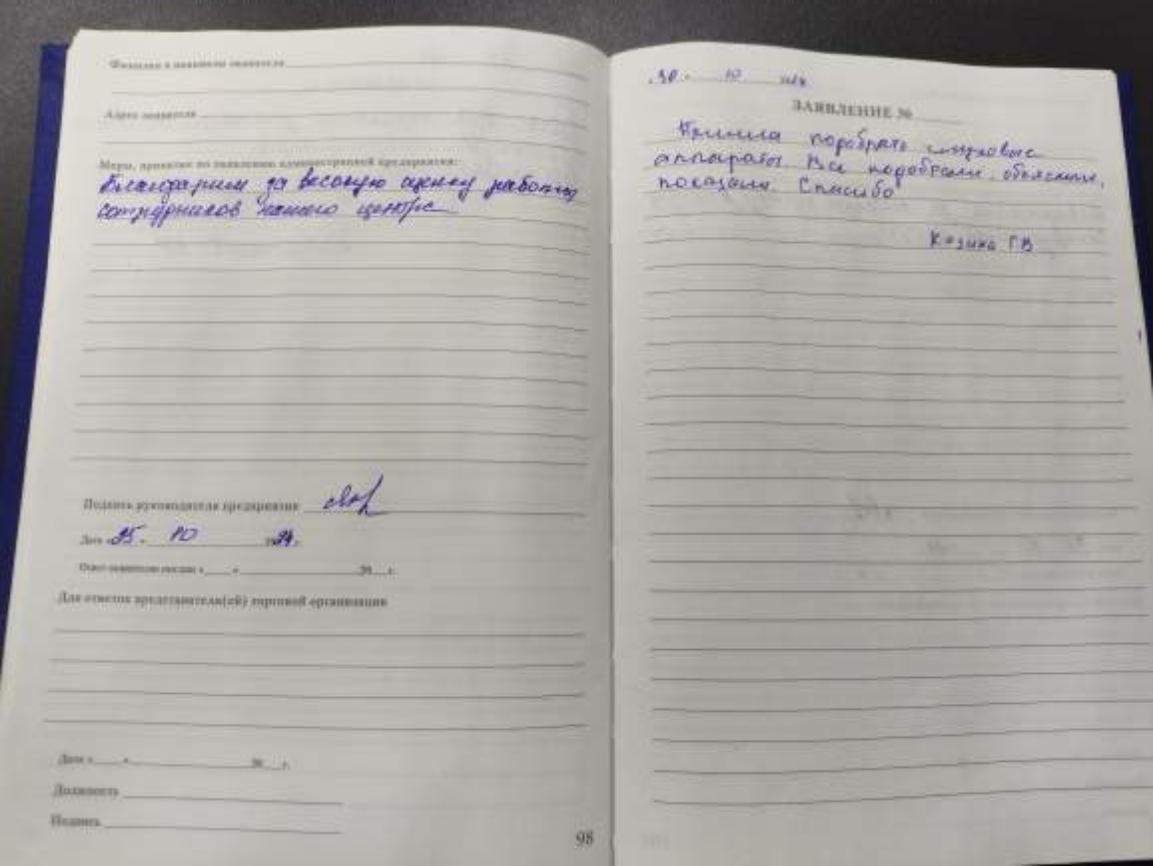 Фамилия и инициалы заявителя
Адрес заявителя
Меры, принятые по заявлению администрацией предприятия:
Благодарим за высокую оценку работы
сотрудников нашего центра
Подпись руководителя предприятия
Дата «25» 10 2024 г.
Ответ заявителю послан « » 20 г.
Для отметок представителя(ей) торговой организации
Дата « » 20 г.
Должность
Подпись
98
«30» 10 2024
ЗАЯВЛЕНИЕ №
Пришла подобрать слуховые
аппараты. Все подобрали, объяснили,
показали. Спасибо
Г.В